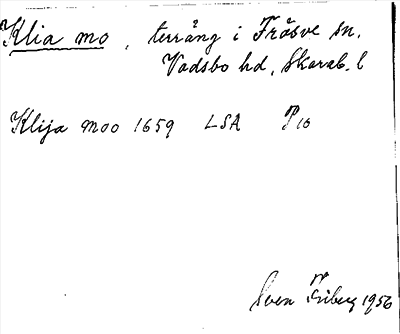 Klia mo, terräng i Fräsve sn.
Vadsbo hd, Skarab. l
Klija moo 1659 LSA P10
Sven Friberg 1956